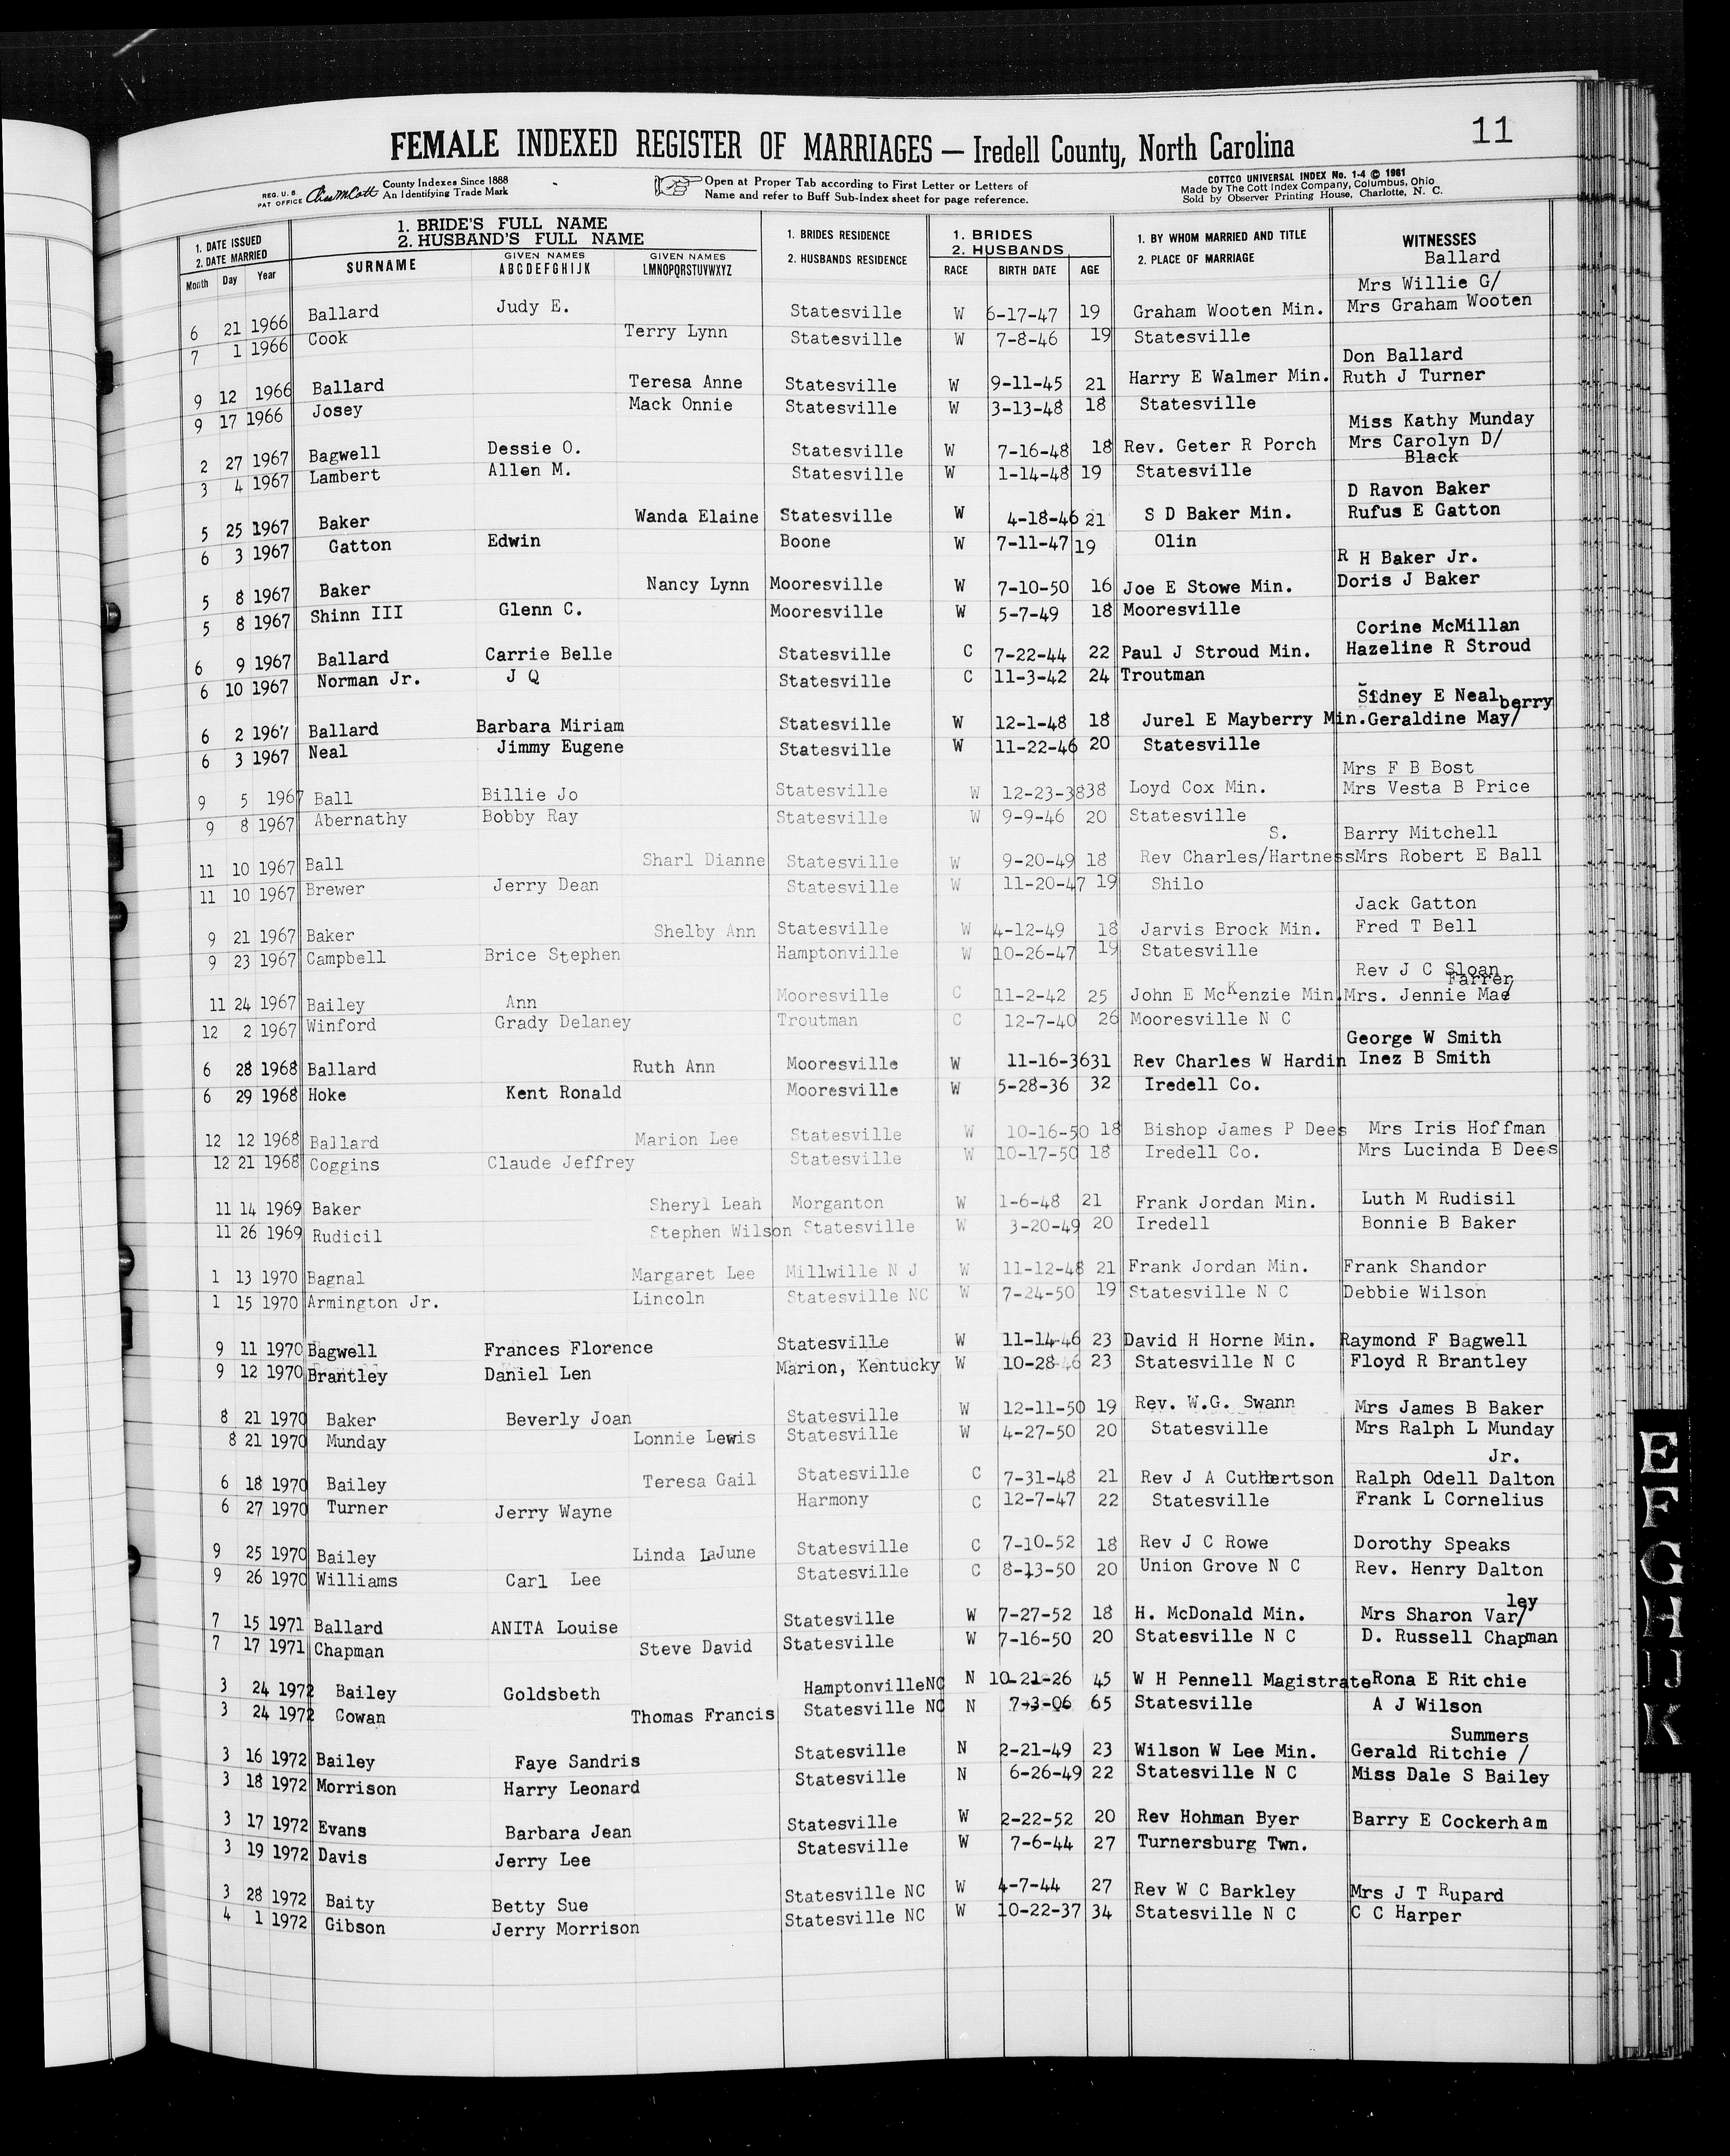 11
FEMALE INDEXED REGISTER OF MARRIAGES — Iredell County, North Carolina
REG. U.S. PAT OFFICE County Indexes Since 1888 An Identifying Trade Mark
Open at Proper Tab according to First Letter or Letters of Name and refer to Buff Sub-Index sheet for page reference.
COTTCO UNIVERSAL INDEX No. 1-4 © 1961
Made by The Cott Index Company, Columbus, Ohio
Sold by Observer Printing House, Charlotte, N. C.
1. DATE ISSUED 2. DATE MARRIED Month Day Year
1. BRIDE'S FULL NAME 2. HUSBAND'S FULL NAME SURNAME GIVEN NAMES ABCDEFGHIJK GIVEN NAMES LMNOPQRSTUVWXYZ
1. BRIDES RESIDENCE 2. HUSBANDS RESIDENCE
1. BRIDES 2. HUSBANDS RACE BIRTH DATE AGE
1. BY WHOM MARRIED AND TITLE 2. PLACE OF MARRIAGE
WITNESSES
Ballard
Mrs Willie G/
6 21 1966 Ballard Judy E. Statesville W 6-17-47 19 Graham Wooten Min. Mrs Graham Wooten
7 1 1966 Cook Terry Lynn Statesville W 7-8-46 19 Statesville
Don Ballard
9 12 1966 Ballard Teresa Anne Statesville W 9-11-45 21 Harry E Walmer Min. Ruth J Turner
9 17 1966 Josey Mack Onnie Statesville W 3-13-48 18 Statesville
Miss Kathy Munday
2 27 1967 Bagwell Dessie O. Statesville W 7-16-48 18 Rev. Geter R Porch Mrs Carolyn D/
3 4 1967 Lambert Allen M. Statesville W 1-14-48 19 Statesville Black
D Ravon Baker
5 25 1967 Baker Wanda Elaine Statesville W 4-18-46 21 S D Baker Min. Rufus E Gatton
6 3 1967 Gatton Edwin Boone W 7-11-47 19 Olin
R H Baker Jr.
5 8 1967 Baker Nancy Lynn Mooresville W 7-10-50 16 Joe E Stowe Min. Doris J Baker
5 8 1967 Shinn III Glenn C. Mooresville W 5-7-49 18 Mooresville
Corine McMillan
6 9 1967 Ballard Carrie Belle Statesville C 7-22-44 22 Paul J Stroud Min. Hazeline R Stroud
6 10 1967 Norman Jr. J Q Statesville C 11-3-42 24 Troutman
Sidney E Neal
berry
6 2 1967 Ballard Barbara Miriam Statesville W 12-1-48 18 Jurel E Mayberry Min. Geraldine May/
6 3 1967 Neal Jimmy Eugene Statesville W 11-22-46 20 Statesville
Mrs F B Bost
9 5 1967 Ball Billie Jo Statesville W 12-23-38 38 Loyd Cox Min. Mrs Vesta B Price
9 8 1967 Abernathy Bobby Ray Statesville W 9-9-46 20 Statesville
S. Barry Mitchell
11 10 1967 Ball Sharl Dianne Statesville W 9-20-49 18 Rev Charles/Hartness Mrs Robert E Ball
11 10 1967 Brewer Jerry Dean Statesville W 11-20-47 19 Shilo
Jack Gatton
9 21 1967 Baker Shelby Ann Statesville W 4-12-49 18 Jarvis Brock Min. Fred T Bell
9 23 1967 Campbell Brice Stephen Hamptonville W 10-26-47 19 Statesville
Rev J C Sloan
Farrer
11 24 1967 Bailey Ann Mooresville C 11-2-42 25 John E McKenzie Min. Mrs. Jennie Mae/
12 2 1967 Winford Grady Delaney Troutman C 12-7-40 26 Mooresville N C
George W Smith
6 28 1968 Ballard Ruth Ann Mooresville W 11-16-36 31 Rev Charles W Hardin Inez B Smith
6 29 1968 Hoke Kent Ronald Mooresville W 5-28-36 32 Iredell Co.
12 12 1968 Ballard Marion Lee Statesville W 10-16-50 18 Bishop James P Dees Mrs Iris Hoffman
12 21 1968 Coggins Claude Jeffrey Statesville W 10-17-50 18 Iredell Co. Mrs Lucinda B Dees
11 14 1969 Baker Sheryl Leah Morganton W 1-6-48 21 Frank Jordan Min. Luth M Rudisil
11 26 1969 Rudicil Stephen Wilson Statesville W 3-20-49 20 Iredell Bonnie B Baker
1 13 1970 Bagnal Margaret Lee Millwille N J W 11-12-48 21 Frank Jordan Min. Frank Shandor
1 15 1970 Armington Jr. Lincoln Statesville NC W 7-24-50 19 Statesville N C Debbie Wilson
9 11 1970 Bagwell Frances Florence Statesville W 11-14-46 23 David H Horne Min. Raymond F Bagwell
9 12 1970 Brantley Daniel Len Marion, Kentucky W 10-28-46 23 Statesville N C Floyd R Brantley
8 21 1970 Baker Beverly Joan Statesville W 12-11-50 19 Rev. W.G. Swann Mrs James B Baker
8 21 1970 Munday Lonnie Lewis Statesville W 4-27-50 20 Statesville Mrs Ralph L Munday
Jr.
6 18 1970 Bailey Teresa Gail Statesville C 7-31-48 21 Rev J A Cuthbertson Ralph Odell Dalton
6 27 1970 Turner Jerry Wayne Harmony C 12-7-47 22 Statesville Frank L Cornelius
9 25 1970 Bailey Linda LaJune Statesville C 7-10-52 18 Rev J C Rowe Dorothy Speaks
9 26 1970 Williams Carl Lee Statesville C 8-13-50 20 Union Grove N C Rev. Henry Dalton
ley
7 15 1971 Ballard ANITA Louise Statesville W 7-27-52 18 H. McDonald Min. Mrs Sharon Var/
7 17 1971 Chapman Steve David Statesville W 7-16-50 20 Statesville N C D. Russell Chapman
3 24 1972 Bailey Goldsbeth HamptonvilleNC N 10-21-26 45 W H Pennell Magistrate Rona E Ritchie
3 24 1972 Cowan Thomas Francis Statesville NC N 7-3-06 65 Statesville A J Wilson
Summers
3 16 1972 Bailey Faye Sandris Statesville N 2-21-49 23 Wilson W Lee Min. Gerald Ritchie /
3 18 1972 Morrison Harry Leonard Statesville N 6-26-49 22 Statesville N C Miss Dale S Bailey
3 17 1972 Evans Barbara Jean Statesville W 2-22-52 20 Rev Hohman Byer Barry E Cockerham
3 19 1972 Davis Jerry Lee Statesville W 7-6-44 27 Turnersburg Twn.
3 28 1972 Baity Betty Sue Statesville NC W 4-7-44 27 Rev W C Barkley Mrs J T Rupard
4 1 1972 Gibson Jerry Morrison Statesville NC W 10-22-37 34 Statesville N C C C Harper
E
F
G
H
IJ
K